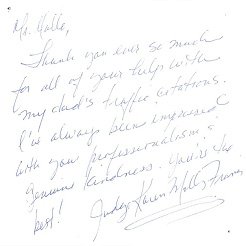 Mr. Halls,
Thank you ever so much
for all of your help with
my dad's traffic citations.
I've always been impressed
with your professionalism &
genuine kindness. You're the
best!
Judge Karen Molly Francis